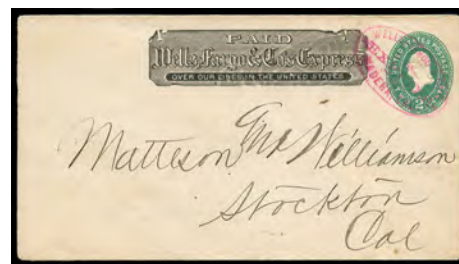 PAID
Wells Fargo & Co's Express
OVER OUR LINES IN THE UNITED STATES
UNITED STATES POSTAGE
TWO CENTS
2
WELLS
EX
Matteson Williamson
Stockton
Cal